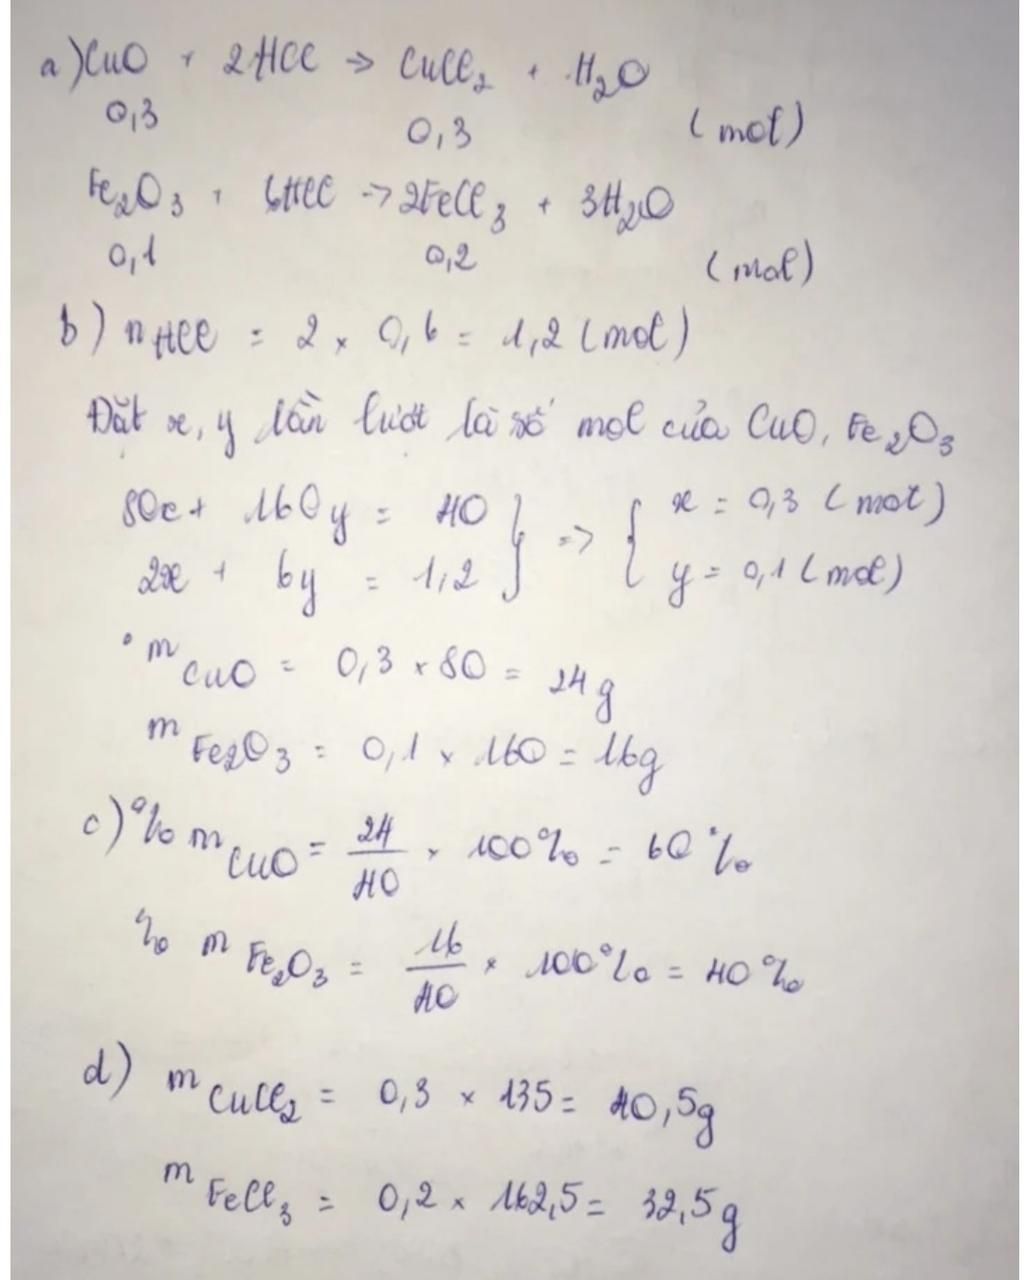 a) CuO + 2HCl → CuCl₂ + H₂O
0,3 0,3 (mol)
Fe₂O₃ + 6HCl → 2FeCl₃ + 3H₂O
0,1 0,2 (mol)
b) nHCl = 2 × 0,6 = 1,2 (mol)
Đặt x, y lần lượt là số mol của CuO, Fe₂O₃
80x + 160y = 40 } => { x = 0,3 (mol)
2x + 6y = 1,2 } { y = 0,1 (mol)
• mCuO = 0,3 × 80 = 24g
mFe₂O₃ = 0,1 × 160 = 16g
c) % mCuO = 24/40 × 100% = 60%
% mFe₂O₃ = 16/40 × 100% = 40%
d) mCuCl₂ = 0,3 × 135 = 40,5g
mFeCl₃ = 0,2 × 162,5 = 32,5g